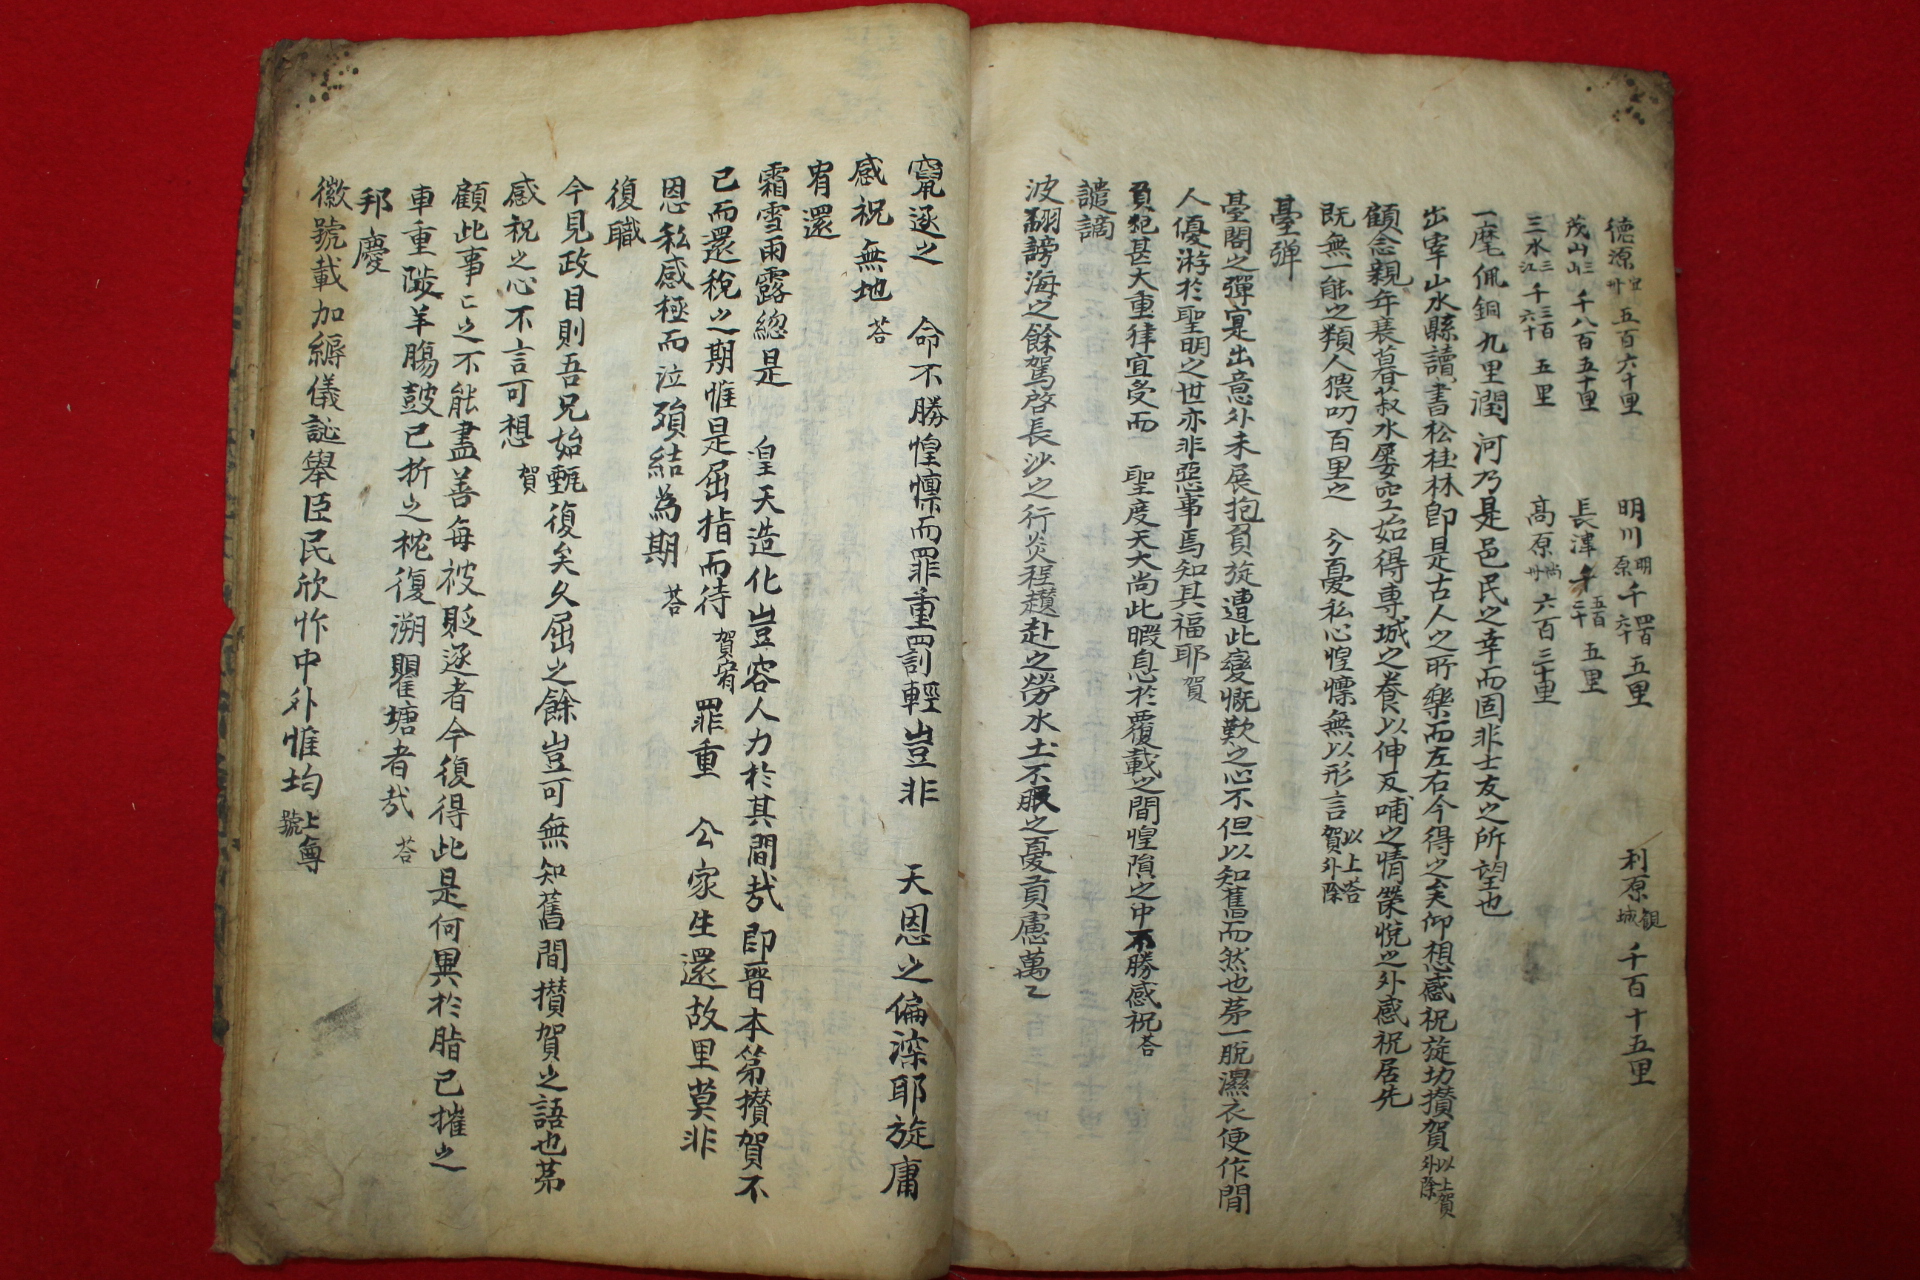 德源宜州五百六十里 明川明原千四百六十五里 利原觀城千百十五里
茂山三山千八百五十里 長津千五百二十五里
三水三江千三百六十五里 高原州六百三十里
一麾佩銅九里潤河乃是邑民之幸而固非士友之所望也
出宰山水縣讀書松桂林卽是古人之所樂而左右今得之矣仰想感祝旋切攢賀以上賀外除
顧念親年衰暮菽水屢空始得專城之養以伸反哺之情榮悅之外感祝居先
旣無一能之類人猥叨百里之 分憂私心惶慄無以形言以上答賀外除
臺彈
臺閣之彈寔出意外未展抱負旋遭此變慨歎之心不但以知舊而然也苐一脫濕衣便作閒
人優游於聖明之世亦非惡事焉知其福耶賀
負犯甚大重律宜受而 聖度天大尚此暇息於覆載之間惶隕之中不勝感祝答
譴謫
波翻謗海之餘駕啓長沙之行炎程趲赴之勞水土不服之憂貢慮萬〻
竄逐之 命不勝惶懍而罪重罰輕豈非 天恩之偏深耶旋庸
感祝無地 答
宥還
霜雪雨露總是 皇天造化豈容人力於其間哉卽晋本第攢賀不
已而還稅之期惟是屈指而待賀宥 罪重 公家生還故里莫非
恩私感極而泣殞結為期 答
復職
今見政目則吾兄始甄復矣久屈之餘豈可無知舊間攢賀之語也苐
感祝之心不言可想 賀
顧此事亡之不能盡善每被貶逐者今復得此是何異於脂已摧之
車重陟羊腸鼓已折之枕復溯瞿塘者哉 答
邦慶
徽號載加縟儀誕擧臣民欣忭中外惟均上尊號